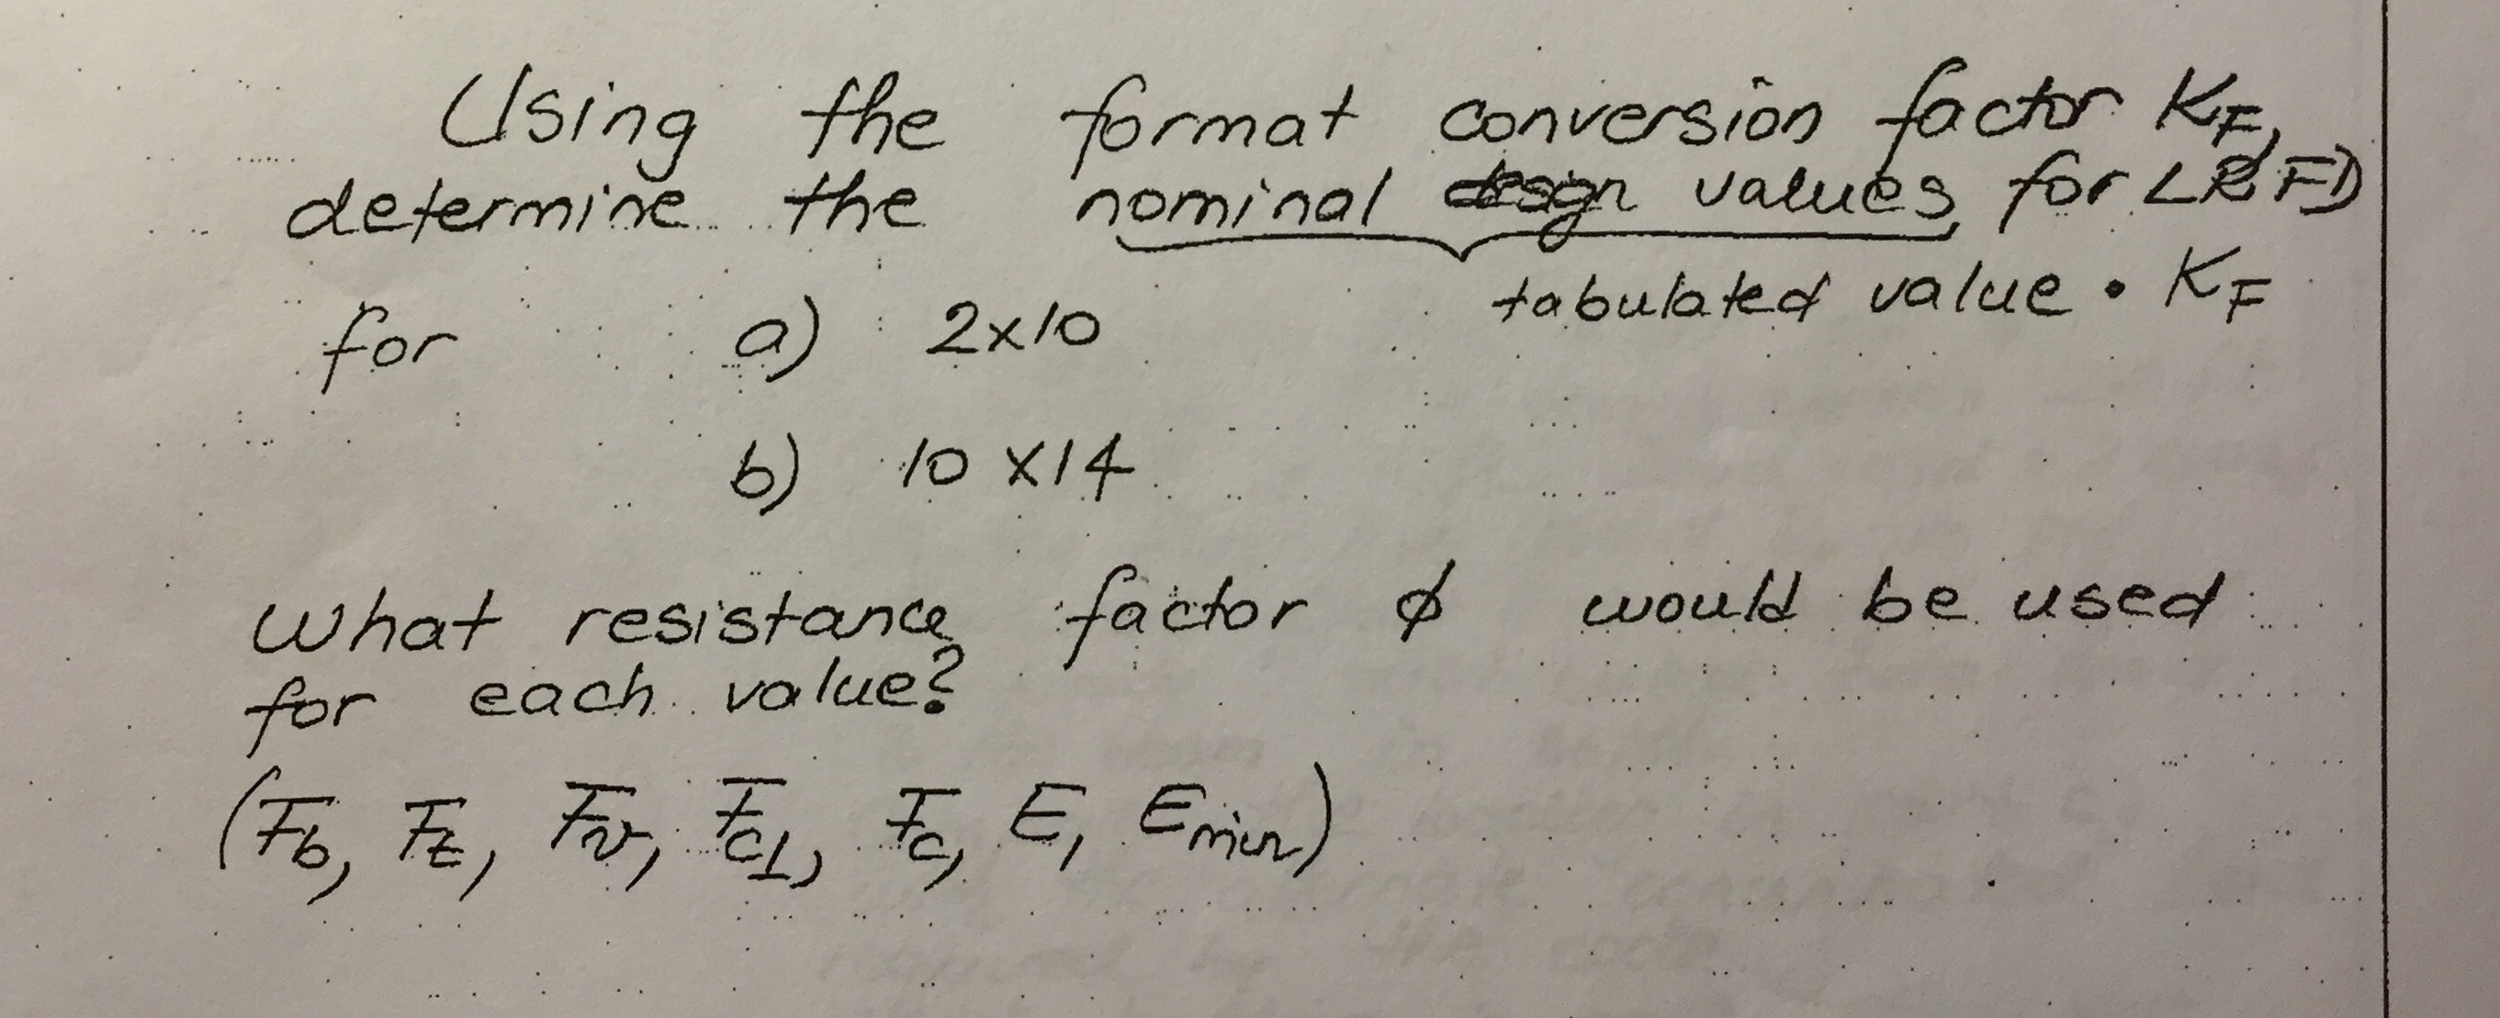 Using the format conversion factor K_F,
determine the nominal design values for LRFD
tabulated value • K_F
for a) 2x10
b) 10 x14
What resistance factor ϕ would be used
for each value?
(F_b, F_t, F_v, F_c⊥, F_c, E, E_min)